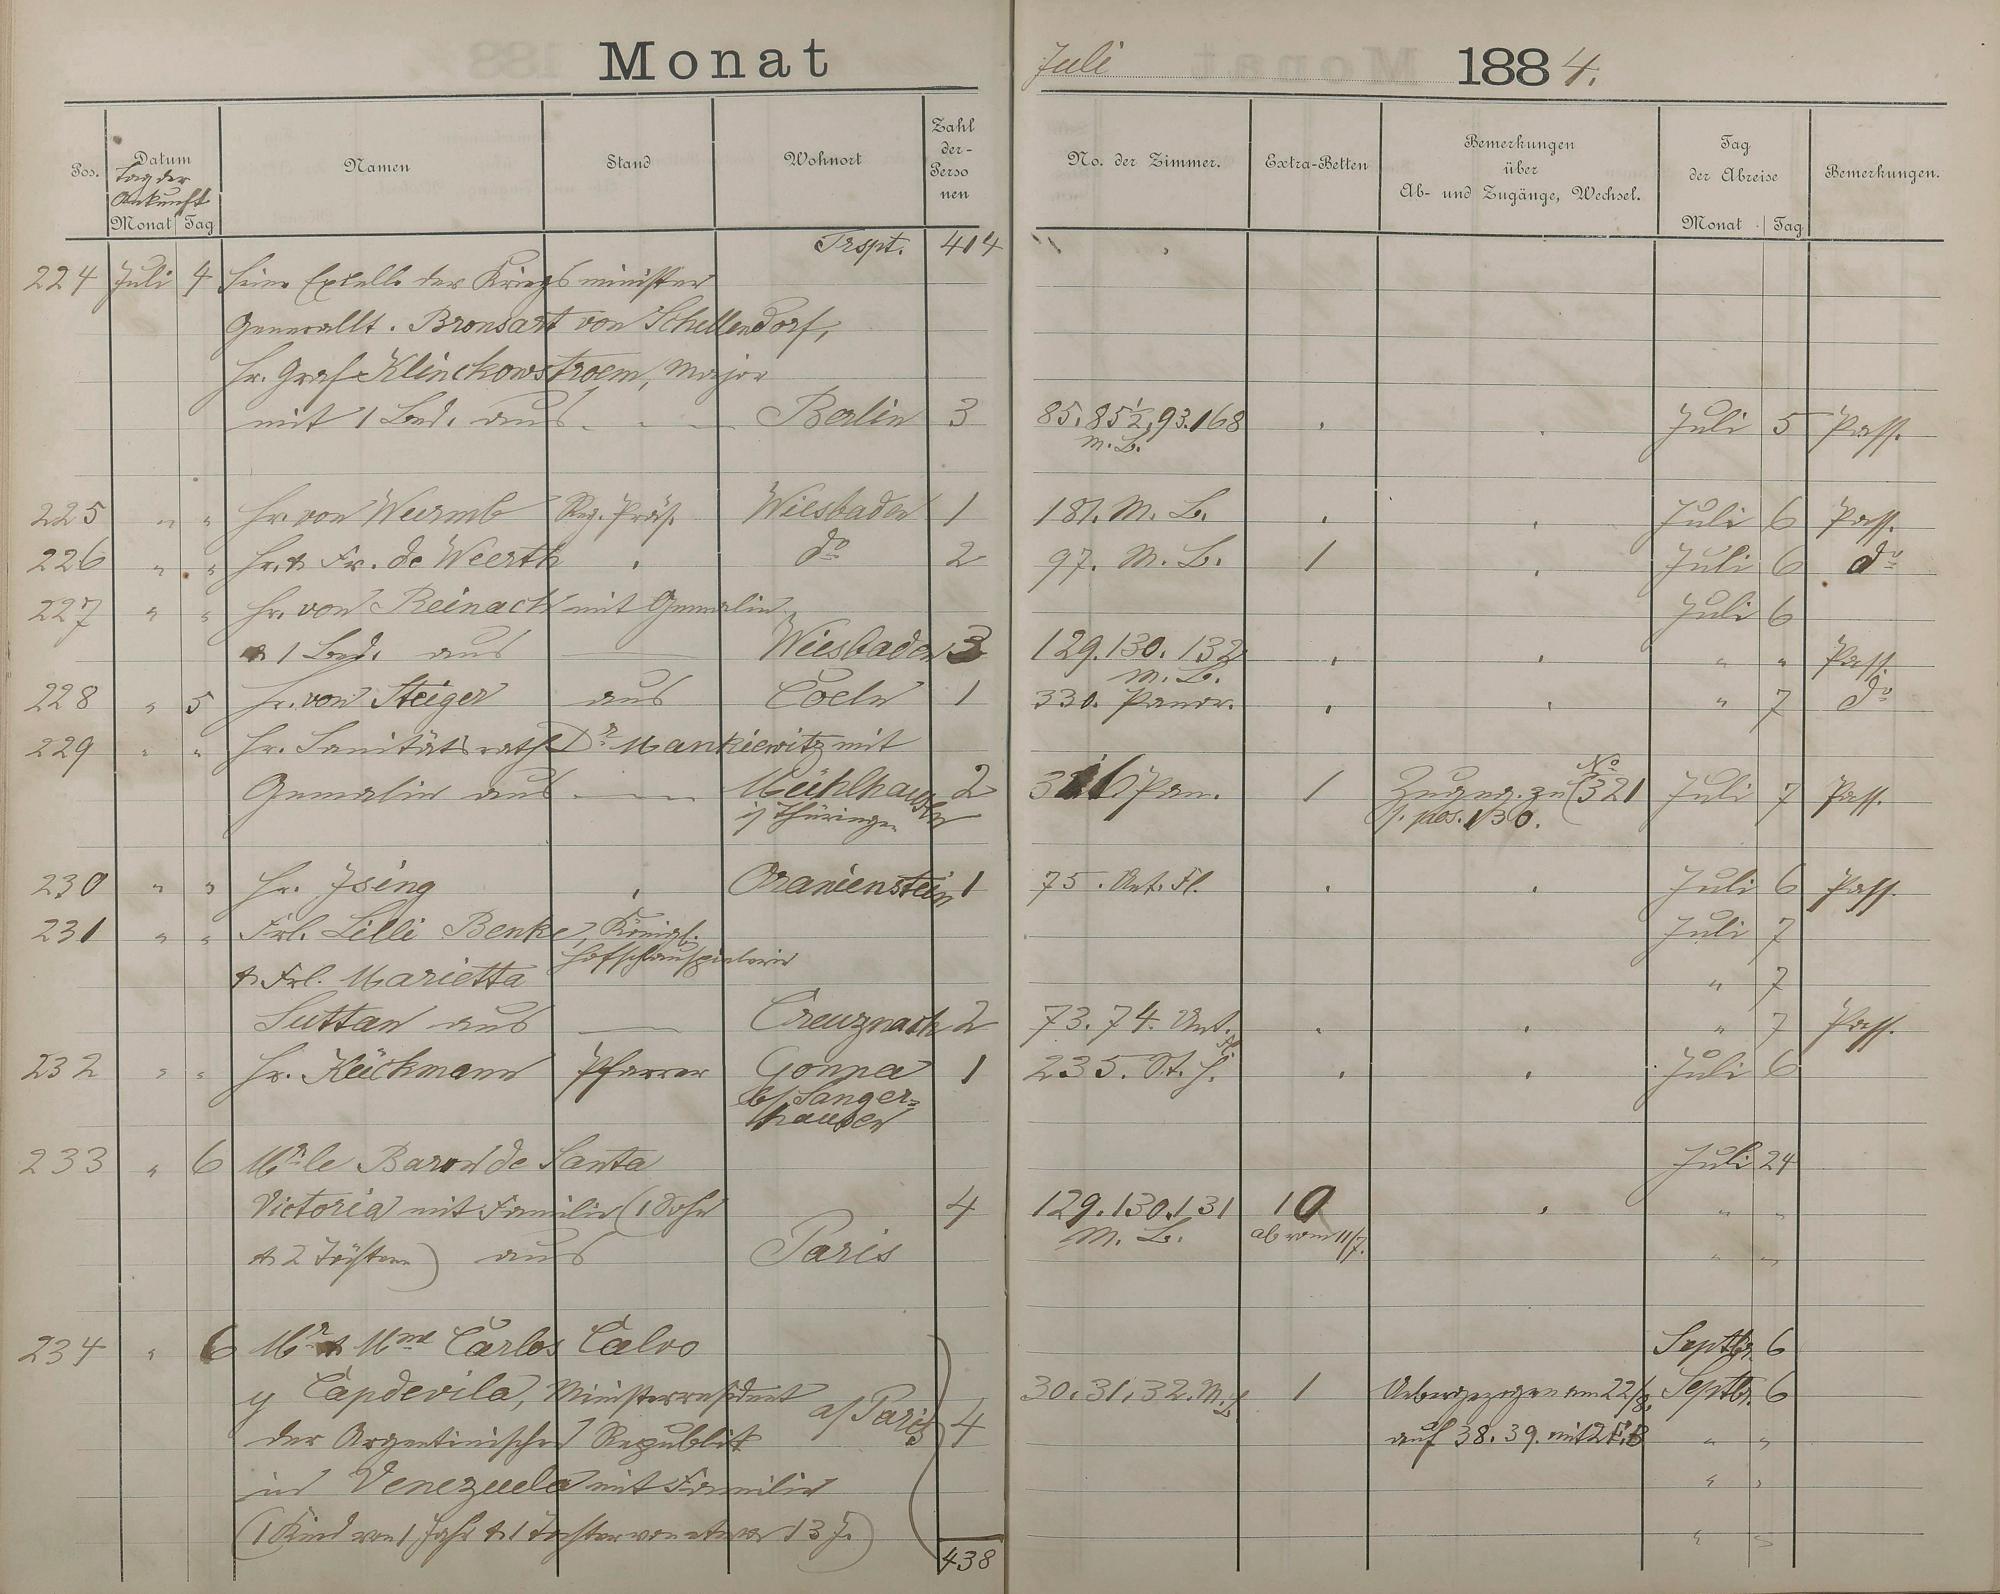 Monat
Juli 1884.
Pos.
Datum
Tag der
Ankunft
Monat Tag
Namen
Stand
Wohnort
Zahl
der-
Perso
nen
No. der Zimmer.
Extra-Betten
Bemerkungen
über
Ab- und Zugänge, Wechsel.
Tag
der Abreise
Monat Tag
Bemerkungen.
Trspt. 414
224 Juli 4 Seine Excell. der Kriegsminister
Generallt. Bronsart von Schellendorf,
Hr. Graf Klinckowstroem, Major
mit 1 Bed. aus Berlin 3 85. 85 1/2, 93. 168 Juli 5 Pass.
m. L.
225 " " Hr. von Wurmb Reg. Präs. Wiesbaden 1 181. M. L. Juli 6 Pass.
226 " " Hr. & Fr. de Weerth do 2 97. M. L. 1 Juli 6 do
227 " " Hr. von Reinach mit Gemalin Juli 6
& 1 Bed. aus Wiesbaden 3 129. 130. 132 " " Pass.
M. L.
228 " 5 Hr. von Steiger aus Coeln 1 330. Panor. " 7 do
229 " " Hr. Sanitätsrath Dr Mankiewitz mit
Gemalin aus Mühlhausen 2 316 Pan. 1 Zugeg. zu (No 321 Juli 7 Pass.
i/ Thüringen s. pos. 130.
230 " " Hr. Ising Oranienstein 1 75. Unt. Fl. Juli 6 Pass.
231 " " Frl. Lilli Benke, Königl. Juli 7
Hofschauspielerin
& Frl. Marietta " 7
Suttan aus Creuznach 2 73. 74. Unt. Fl. " 7 Pass.
232 " " Hr. Kückmann Pfarrer Gonna 1 235. St. H. Juli 6
b/ Sanger=
hausen
233 " 6 Mr le Baron de Santa Juli 24
Victoria mit Familie (1 Sohn 4 129. 130. 131 1 0 " "
M. L. ab vom 11/7.
& 2 Töchter) aus Paris " "
234 " 6 Mr & Mme Carlos Calvo Septbr. 6
y Capdevila, Ministerresident a/ Paris 4 30. 31. 32. M. L. 1 Uebergezogen am 22/8. Septbr. 6
der Argentinischen Republik auf 38. 39. mit 2 E. B " "
in Venezuela mit Familie " "
(1 Kind von 1 Jahr & 1 Tochter von etwa 13 J.) " "
438